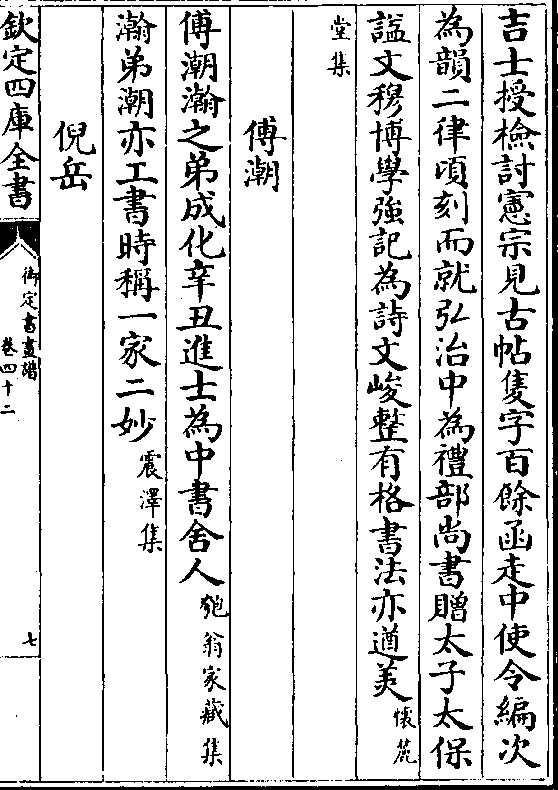 吉士授檢討憲宗見古帖隻字百餘函走中使令編次
為韻二律頃刻而就弘治中為禮部尚書贈太子太保
諡文穆博學強記為詩文峻整有格書法亦遒美懷麓
堂集
傅潮
傅潮瀚之弟成化辛丑進士為中書舍人匏翁家藏集
瀚弟潮亦工書時稱一家二妙震澤集
倪岳
欽定四庫全書
御定書畫譜
卷四十二
七